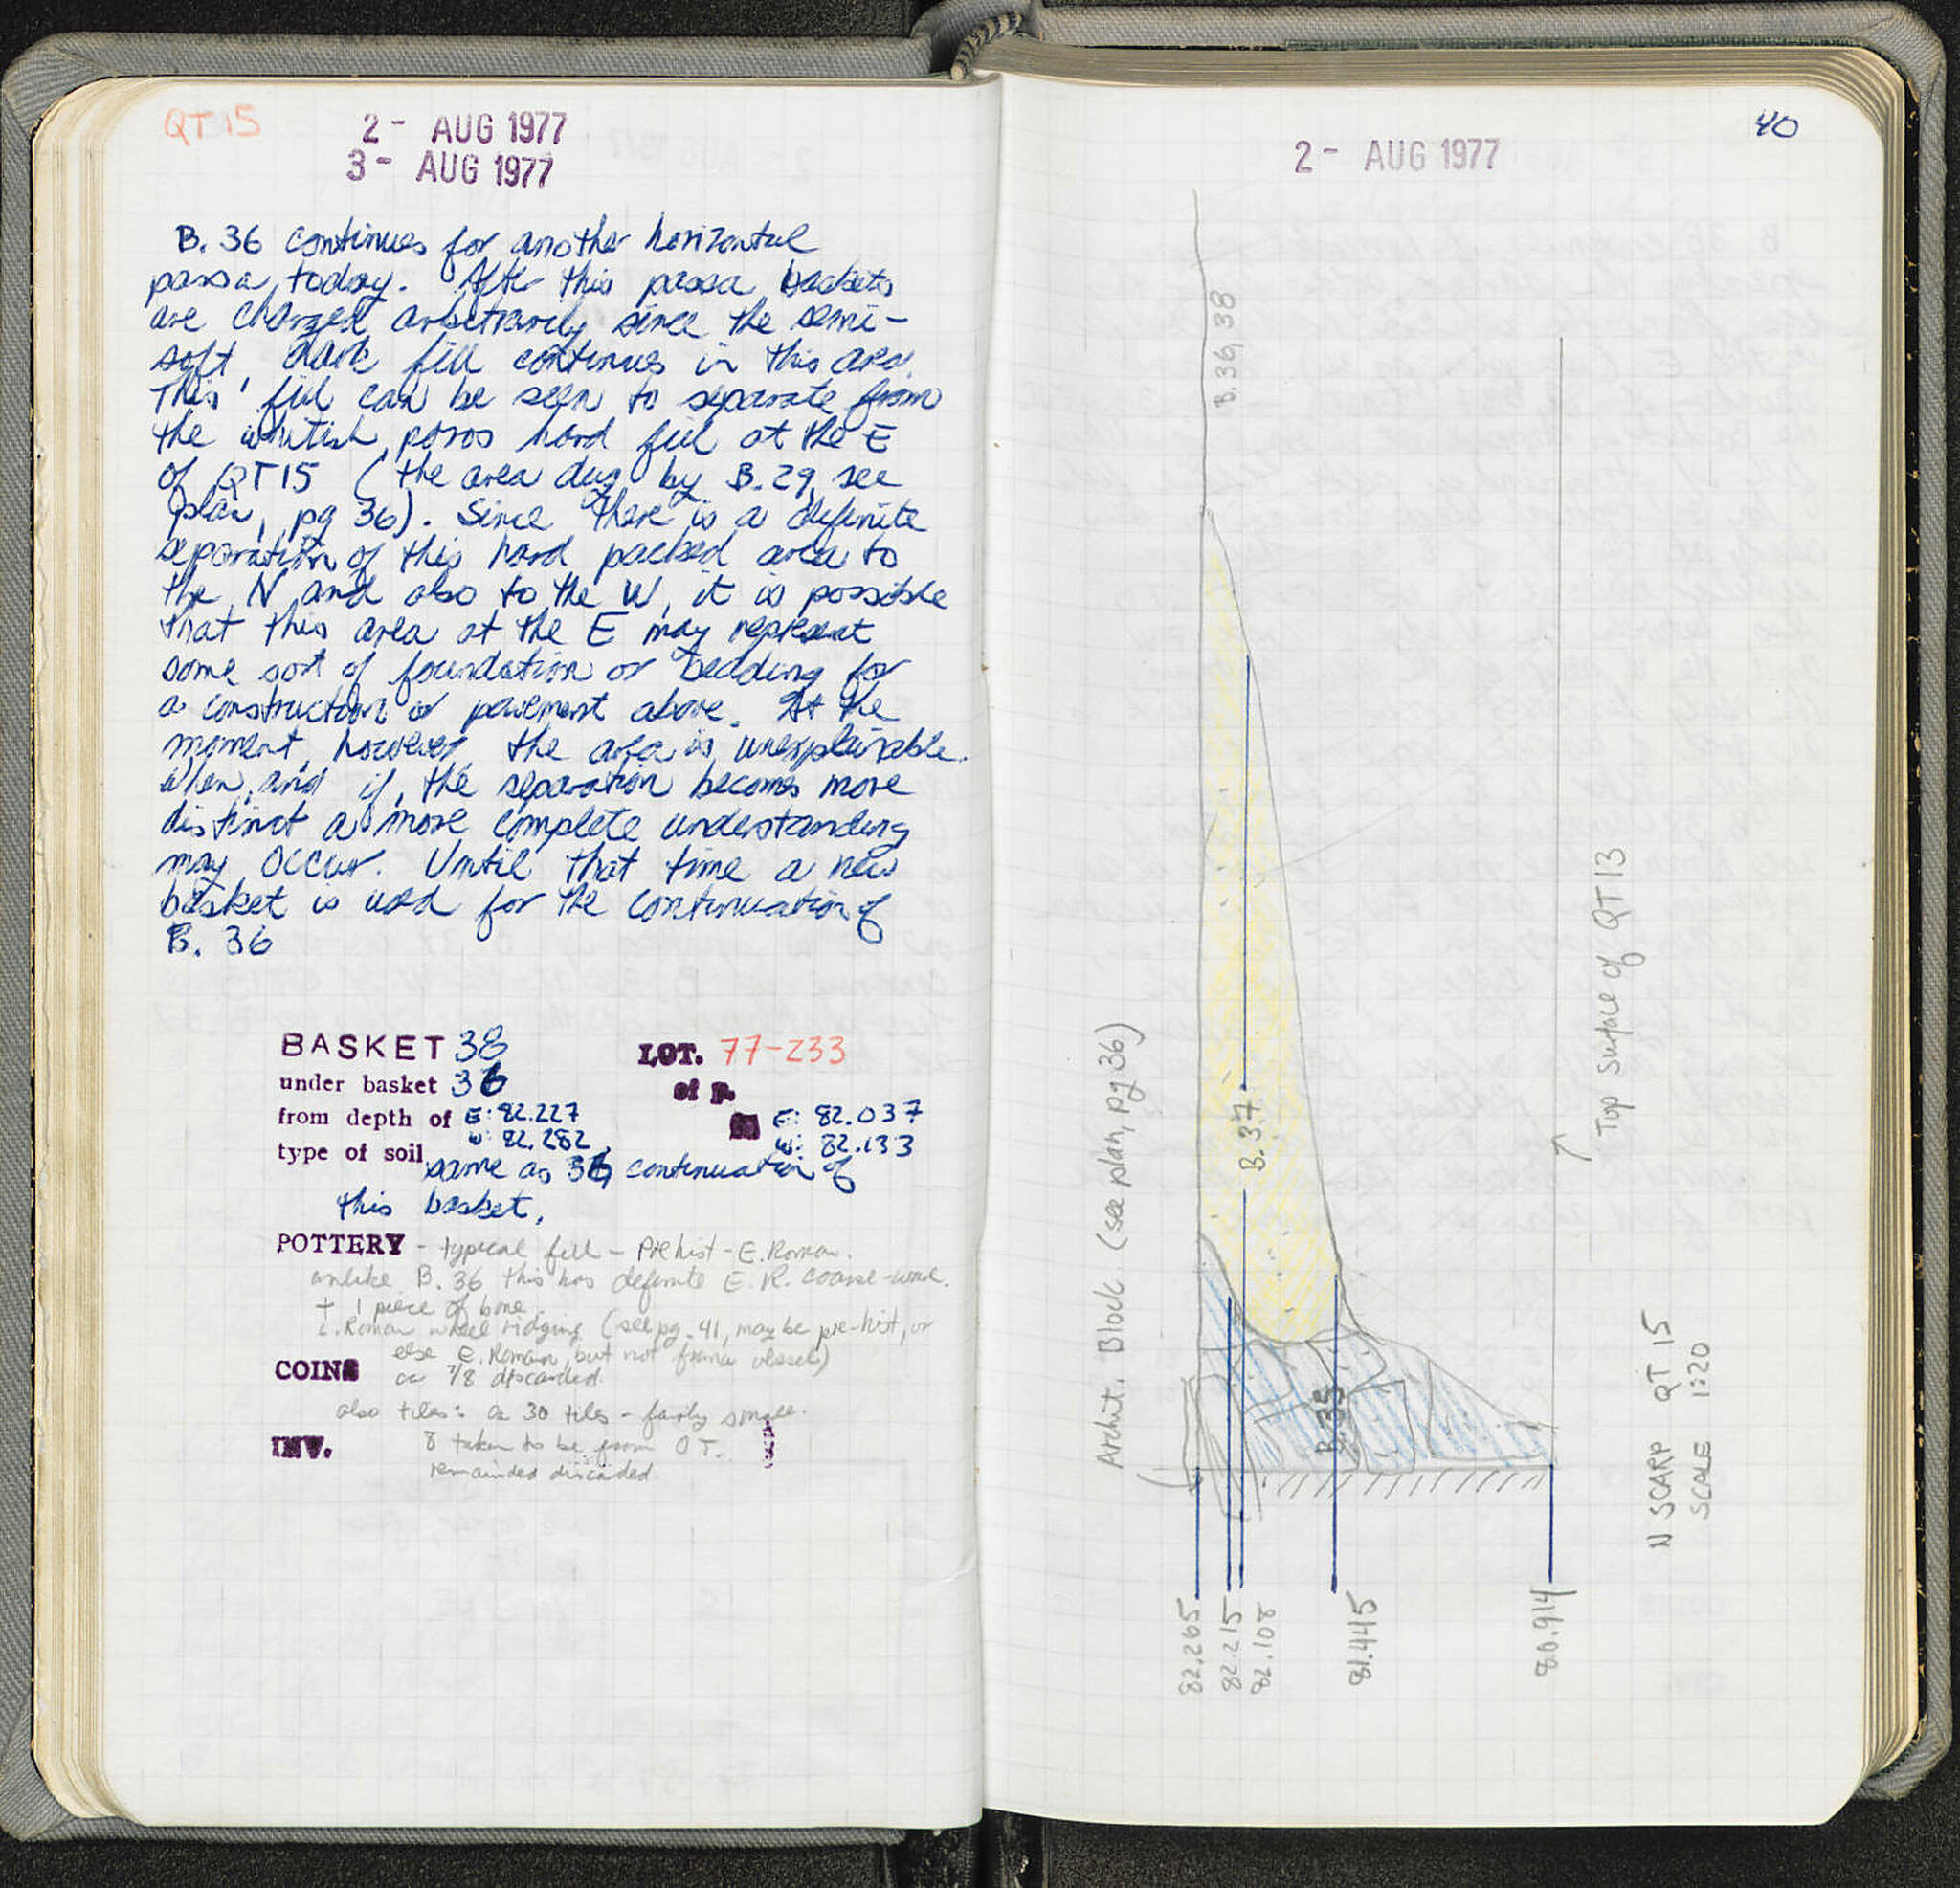 QT 15
2 - AUG 1977
3 - AUG 1977
B. 36 continues for another horizontal
passa today. After this passa baskets
are changed arbitrarily since the semi-
soft, dark fill continues in this area.
This fill can be seen to separate from
the whitish, poros hard fill at the E
of QT15 (the area dug by B. 29, see
plan, pg 36). Since there is a definite
separation of this hard packed area to
the N and also to the W, it is possible
that this area at the E may represent
some sort of foundation or bedding for
a construction or pavement above. At the
moment, however, the area is unexplainable.
When, and if, the separation becomes more
distinct a more complete understanding
may occur. Until that time a new
basket is used for the continuation of
B. 36
BASKET 38
LOT. 77-233
under basket 36
of P.
from depth of E: 82.227
E: 82.037
W: 82.282
W: 82.133
type of soil same as 36, continuation of
this basket.
POTTERY - typical fill - Prehist - E. Roman.
unlike B. 36 this has definite E. R. coarse-ware.
+ 1 piece of bone
Roman wheel ridging (see pg. 41, may be pre-hist, or
else e. Roman, but not from a vessel)
COINS
ca 7/8 discarded.
also tiles: ca 30 tiles - fairly small.
INV.
8 taken to be from OT.
remainded discarded.
40
2 - AUG 1977
B. 36, 38
B. 37
B. 35
Archit. Block (see plan, pg 36)
Top Surface of QT 13
N SCARP QT 15
SCALE 1:20
82.265
82.215
82.108
81.445
80.914